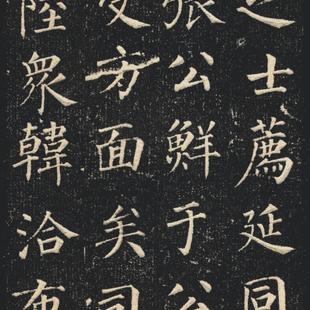 之士薦延同
張公鮮于公
方面矣司
衆韓洽